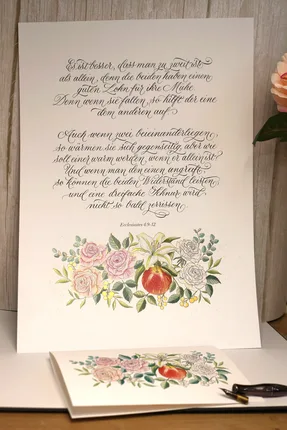 Es ist besser, dass man zu zweit ist
als allein, denn die beiden haben einen
guten Lohn für ihre Mühe.
Denn wenn sie fallen, so hilft der eine
dem anderen auf.
Auch wenn zwei beieinanderliegen,
so wärmen sie sich gegenseitig, aber wie
soll einer warm werden, wenn er allein ist?
Und wenn man den einen angreift,
so können die beiden Widerstand leisten,
und eine dreifache Schnur wird
nicht so bald zerrissen.
Ecclesiastes 4,9-12